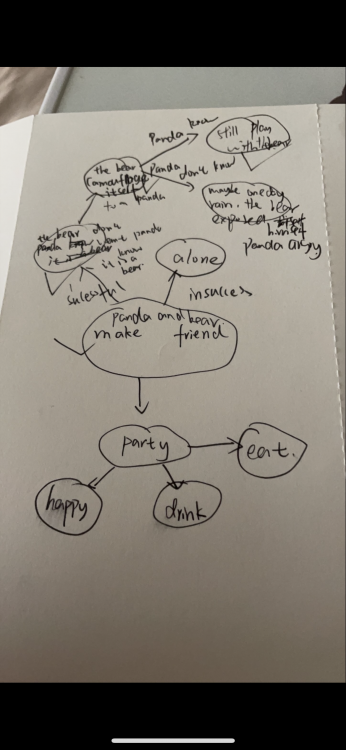 Panda know
still play
with bear
the bear
camouflage
itself
to a panda
Panda
don't know
maybe one day
rain. the bear
exposed
himself
panda angry
the bear don't
want panda
know
it is a
bear
successful
alone
insuccess
panda and bear
make friend
party
eat.
happy
drink